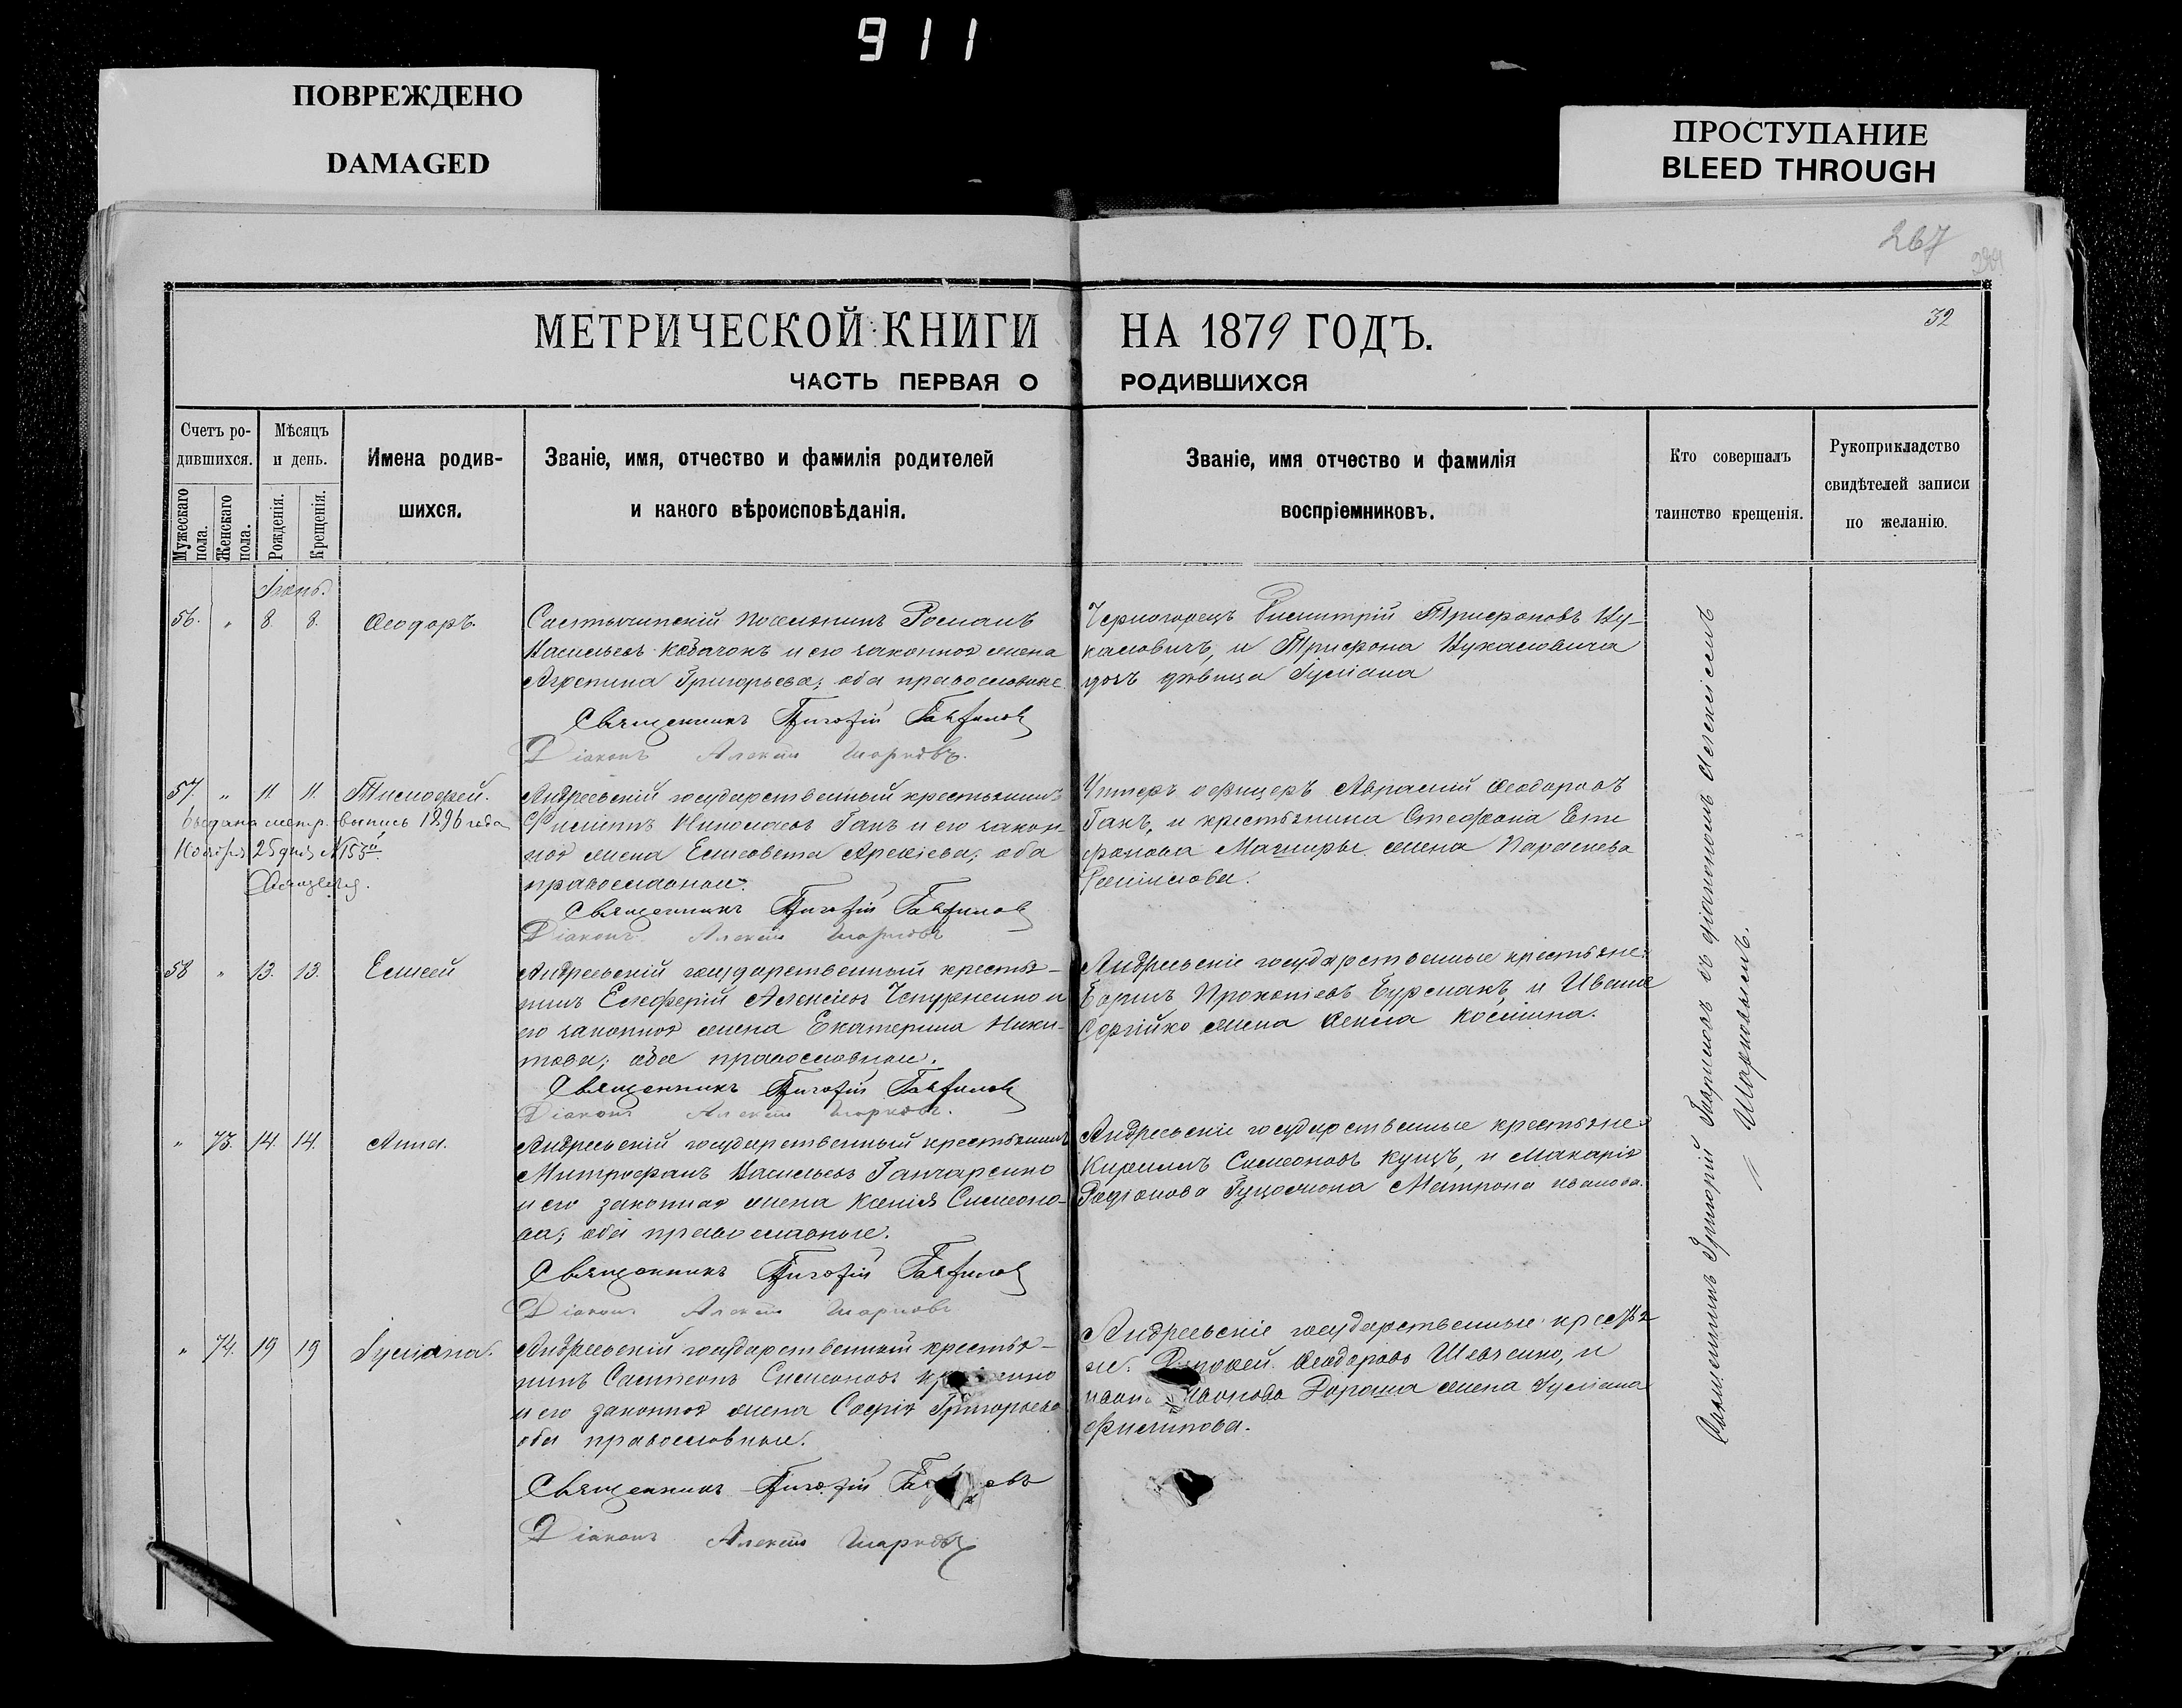 911
ПОВРЕЖДЕНО
DAMAGED
ПРОСТУПАНИЕ
BLEED THROUGH
267
32
МЕТРИЧЕСКОЙ КНИГИ НА 1879 ГОДЪ.
ЧАСТЬ ПЕРВАЯ О РОДИВШИХСЯ
Счетъ ро-
дившихся.
Мужескаго пола.
Женскаго пола.
Мѣсяцъ
и день.
Рожденія.
Крещенія.
Имена родив-
шихся.
Званіе, имя, отчество и фамилія родителей
и какого вѣроисповѣданія.
Званіе, имя отчество и фамилія
воспріемниковъ.
Кто совершалъ
таинство крещенія.
Рукоприкладство
свидѣтелей записи
по желанію.
56. " 8. 8. Ѳеодоръ.
поселянинъ Романъ
Васильевъ и его законная жена
Агрепина Григорьева; оба православные
Священникъ Григорій Гаврилов
Діаконъ Алексій Марковъ.
Черногорецъ Димитрій Трифоновъ Ву-
каловичъ, и Трифона Вукаловича
дочь дѣвица Іуліана
57. " 11. 11. Тимофей.
Выдана метр. выпись 1896 года
Ноября 25 дня №
Андреевскій государственный крестьянинъ
Филиппъ Николаевъ Ганъ и его закон-
ная жена Елисавета; оба
православные.
Священникъ Григорій Гаврилов
Діаконъ Алексій Марковъ
Унтеръ офицеръ Ѳеодоровъ
Ганъ, и крестьянина Стефана Епи
фанова жена Параскева
58 " 13. 13. Елисей
Андреевскій государственный крестья-
нинъ Елеферій Алексіевъ и
его законная жена Екатерина Ники-
това; оба православные.
Священникъ Григорій Гаврилов
Діаконъ Алексій Марковъ.
Андреевскіе государственные крестьяне:
Прокопіевъ Бурмакъ, и Ивана
Сергійко жена
" 73. 14. 14. Анна.
Андреевскій государственный крестьянинъ
Митрофанъ Васильевъ Ганчаренко
и его законная жена Ксенія Симеоно-
ва; оба православные.
Священникъ Григорій Гаврилов
Діаконъ Алексій Марковъ
Андреевскіе государственные крестьяне:
Кириллъ Симеоновъ Куцъ, и Макарія
Родіонова жена Матрона Иванова.
" 74. 19 19 Іуліана.
Андреевскій государственный крестья-
нинъ Сампсонъ Симеоновъ
и его законная жена Софія Григорьева
оба православные.
Священникъ Григорій
Діаконъ Алексій Марковъ
Андреевскіе государственные крестья
не: Ѳеодоровъ Шевченко, и
Дораша жена Іуліана
Филипова.
Священникъ Григорій Гавриловъ съ діакономъ Алексіемъ
Марковымъ.